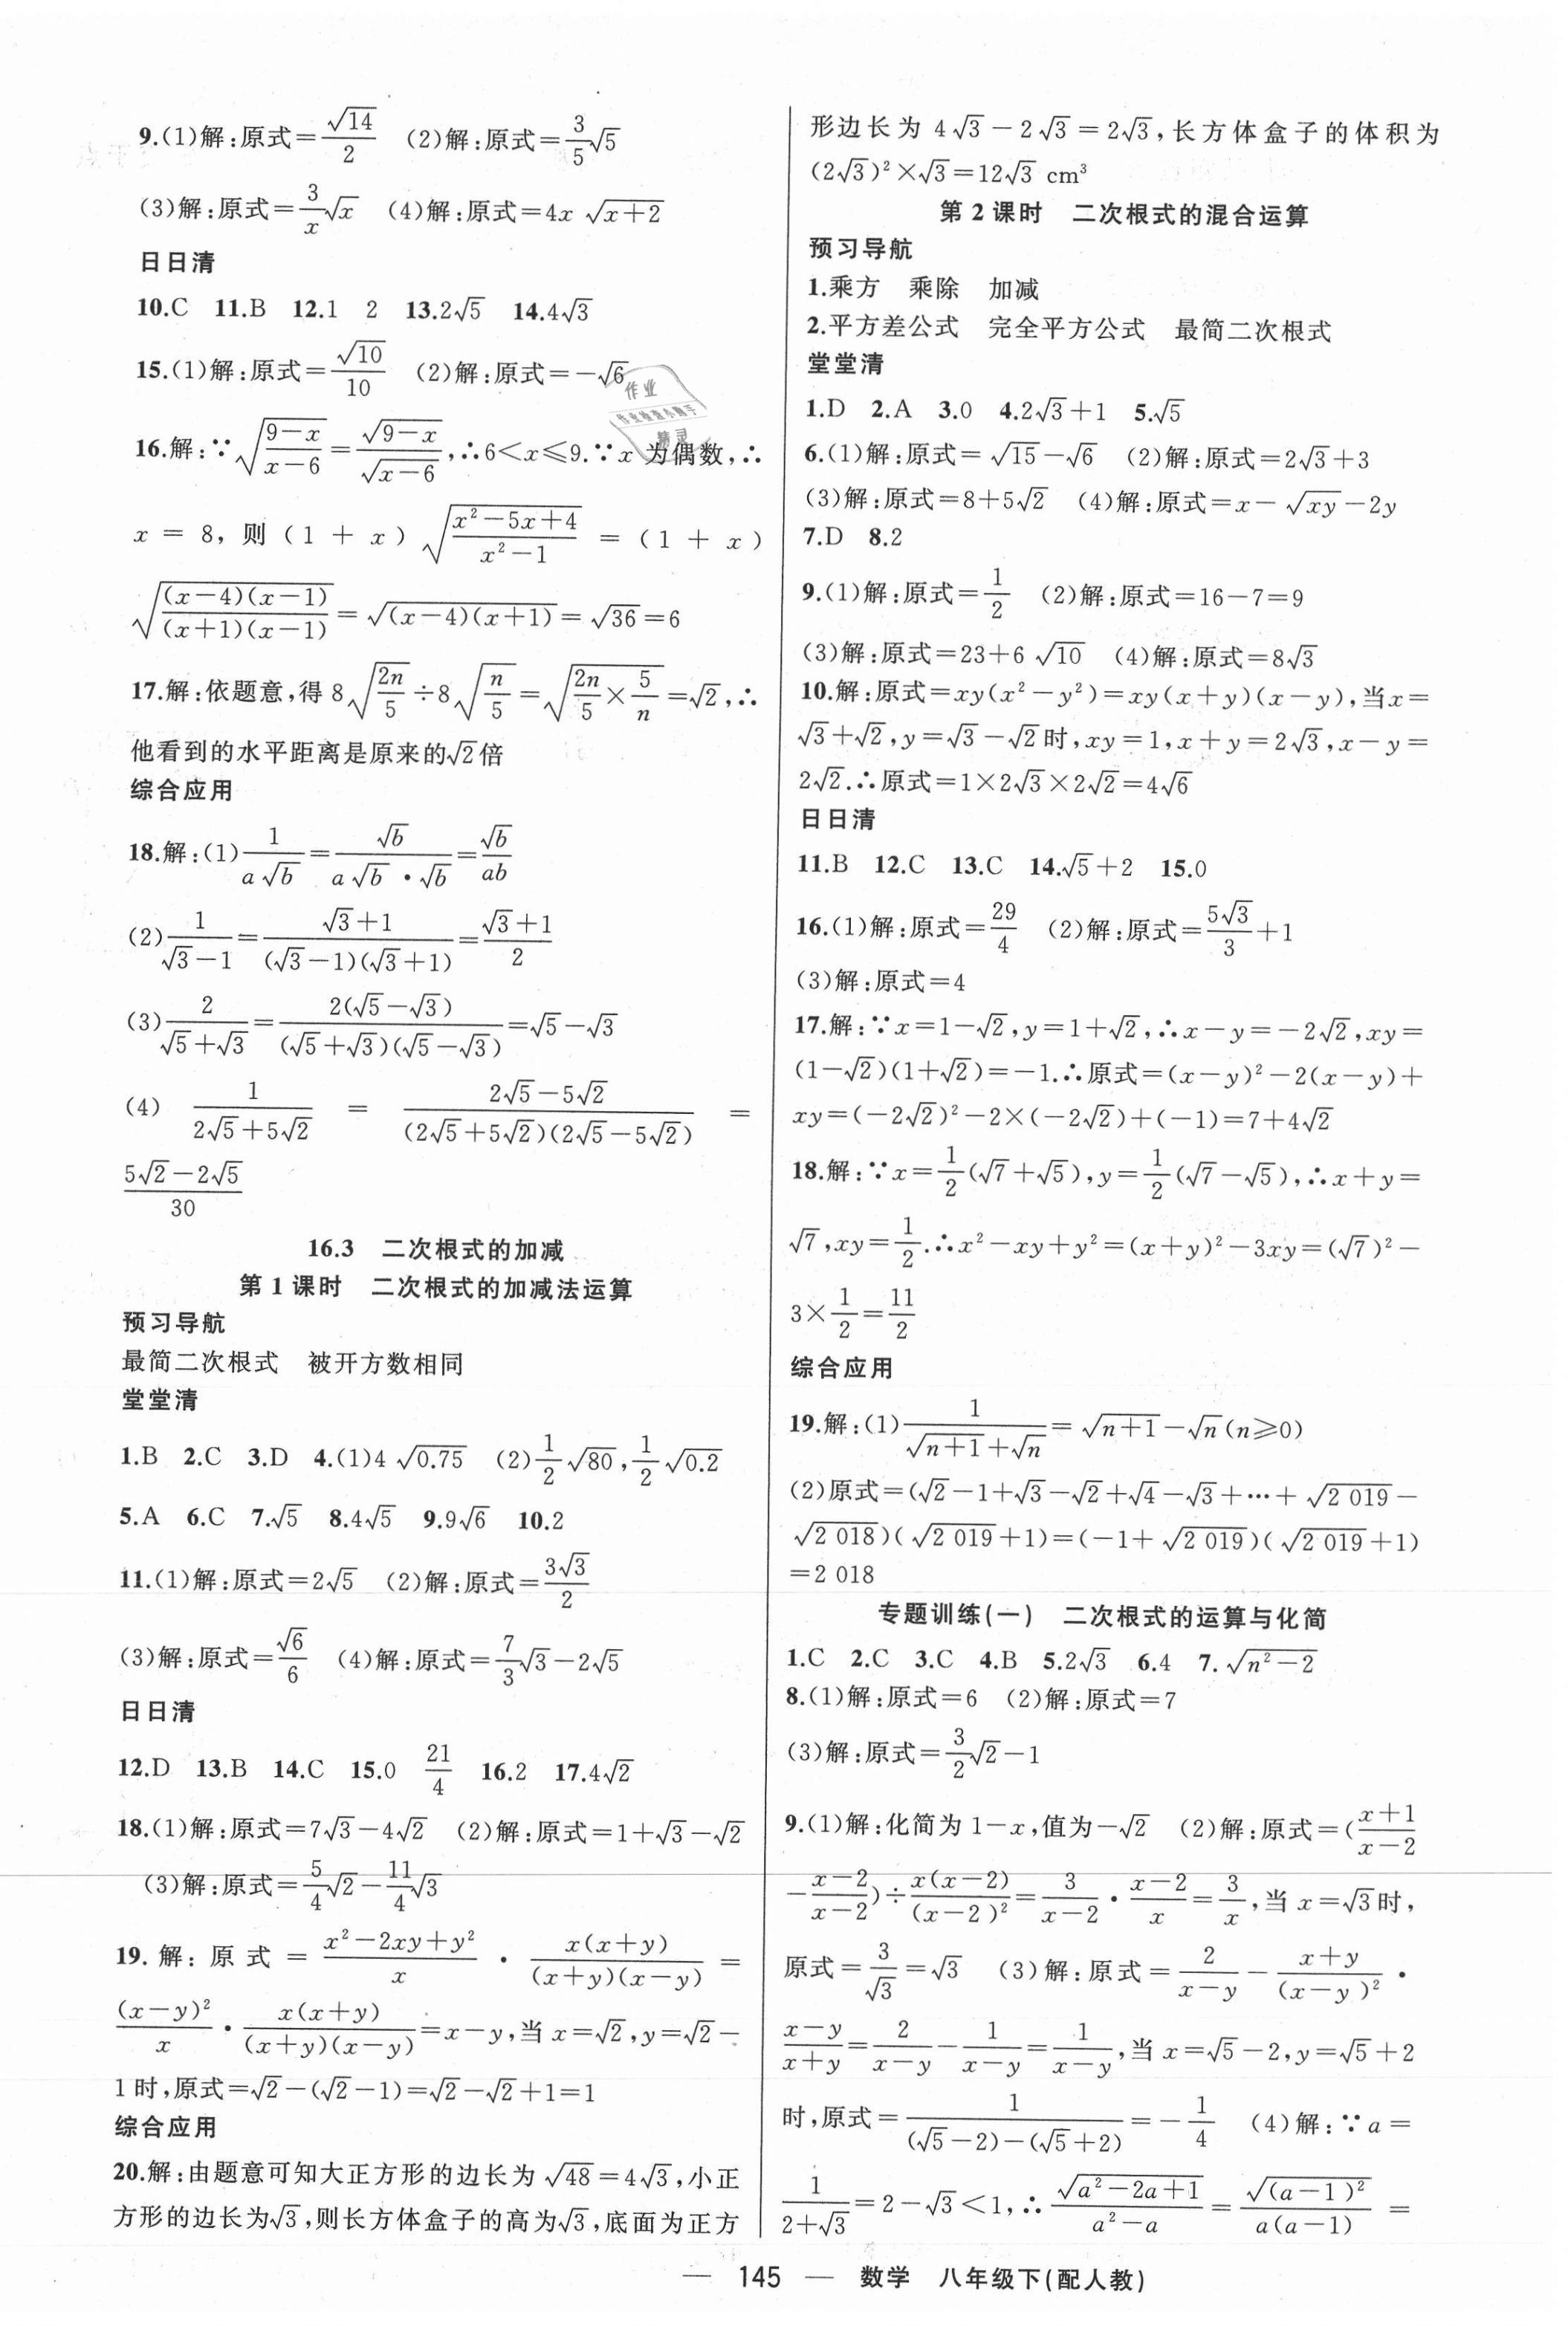 9.(1)解:原式=√14/2 (2)解:原式=3/5√5
(3)解:原式=3/x√x (4)解:原式=4x√(x+2)
日日清
10.C 11.B 12.1 2 13.2√5 14.4√3
15.(1)解:原式=√10/10 (2)解:原式=-√6
作业
作业检查小助手
精灵
16.解:∵√((9-x)/(x-6))=√(9-x)/√(x-6),∴6<x≤9.∵x为偶数,∴
x=8,则(1+x)√((x²-5x+4)/(x²-1))=(1+x)
√((x-4)(x-1)/((x+1)(x-1)))=√((x-4)(x+1))=√36=6
17.解:依题意,得8√(2n/5)÷8√(n/5)=√(2n/5×5/n)=√2,∴
他看到的水平距离是原来的√2倍
综合应用
18.解:(1)1/(a√b)=√b/(a√b·√b)=√b/(ab)
(2)1/(√3-1)=(√3+1)/((√3-1)(√3+1))=(√3+1)/2
(3)2/(√5+√3)=2(√5-√3)/((√5+√3)(√5-√3))=√5-√3
(4)1/(2√5+5√2)=(2√5-5√2)/((2√5+5√2)(2√5-5√2))=
(5√2-2√5)/30
16.3 二次根式的加减
第1课时 二次根式的加减法运算
预习导航
最简二次根式 被开方数相同
堂堂清
1.B 2.C 3.D 4.(1)4√0.75 (2)1/2√80,1/2√0.2
5.A 6.C 7.√5 8.4√5 9.9√6 10.2
11.(1)解:原式=2√5 (2)解:原式=3√3/2
(3)解:原式=√6/6 (4)解:原式=7/3√3-2√5
日日清
12.D 13.B 14.C 15.0 21/4 16.2 17.4√2
18.(1)解:原式=7√3-4√2 (2)解:原式=1+√3-√2
(3)解:原式=5/4√2-11/4√3
19.解:原式=(x²-2xy+y²)/x·x(x+y)/((x+y)(x-y))=
(x-y)²/x·x(x+y)/((x+y)(x-y))=x-y,当x=√2,y=√2-
1时,原式=√2-(√2-1)=√2-√2+1=1
综合应用
20.解:由题意可知大正方形的边长为√48=4√3,小正
方形的边长为√3,则长方体盒子的高为√3,底面为正方
形边长为4√3-2√3=2√3,长方体盒子的体积为
(2√3)²×√3=12√3 cm³
第2课时 二次根式的混合运算
预习导航
1.乘方 乘除 加减
2.平方差公式 完全平方公式 最简二次根式
堂堂清
1.D 2.A 3.0 4.2√3+1 5.√5
6.(1)解:原式=√15-√6 (2)解:原式=2√3+3
(3)解:原式=8+5√2 (4)解:原式=x-√(xy)-2y
7.D 8.2
9.(1)解:原式=1/2 (2)解:原式=16-7=9
(3)解:原式=23+6√10 (4)解:原式=8√3
10.解:原式=xy(x²-y²)=xy(x+y)(x-y),当x=
√3+√2,y=√3-√2时,xy=1,x+y=2√3,x-y=
2√2.∴原式=1×2√3×2√2=4√6
日日清
11.B 12.C 13.C 14.√5+2 15.0
16.(1)解:原式=29/4 (2)解:原式=5√3/3+1
(3)解:原式=4
17.解:∵x=1-√2,y=1+√2,∴x-y=-2√2,xy=
(1-√2)(1+√2)=-1.∴原式=(x-y)²-2(x-y)+
xy=(-2√2)²-2×(-2√2)+(-1)=7+4√2
18.解:∵x=1/2(√7+√5),y=1/2(√7-√5),∴x+y=
√7,xy=1/2.∴x²-xy+y²=(x+y)²-3xy=(√7)²-
3×1/2=11/2
综合应用
19.解:(1)1/(√(n+1)+√n)=√(n+1)-√n(n≥0)
(2)原式=(√2-1+√3-√2+√4-√3+…+√2 019-
√2 018)(√2 019+1)=(-1+√2 019)(√2 019+1)
=2 018
专题训练(一) 二次根式的运算与化简
1.C 2.C 3.C 4.B 5.2√3 6.4 7.√(n²-2)
8.(1)解:原式=6 (2)解:原式=7
(3)解:原式=3/2√2-1
9.(1)解:化简为1-x,值为-√2 (2)解:原式=((x+1)/(x-2)
-(x-2)/(x-2))÷x(x-2)/(x-2)²=3/(x-2)·(x-2)/x=3/x,当x=√3时,
原式=3/√3=√3 (3)解:原式=2/(x-y)-(x+y)/(x-y)²·
(x-y)/(x+y)=2/(x-y)-1/(x-y)=1/(x-y),当x=√5-2,y=√5+2
时,原式=1/((√5-2)-(√5+2))=-1/4 (4)解:∵a=
1/(2+√3)=2-√3<1,∴√(a²-2a+1)/(a²-a)=√((a-1)²)/(a(a-1))=
— 145 — 数学 八年级下(配人教)